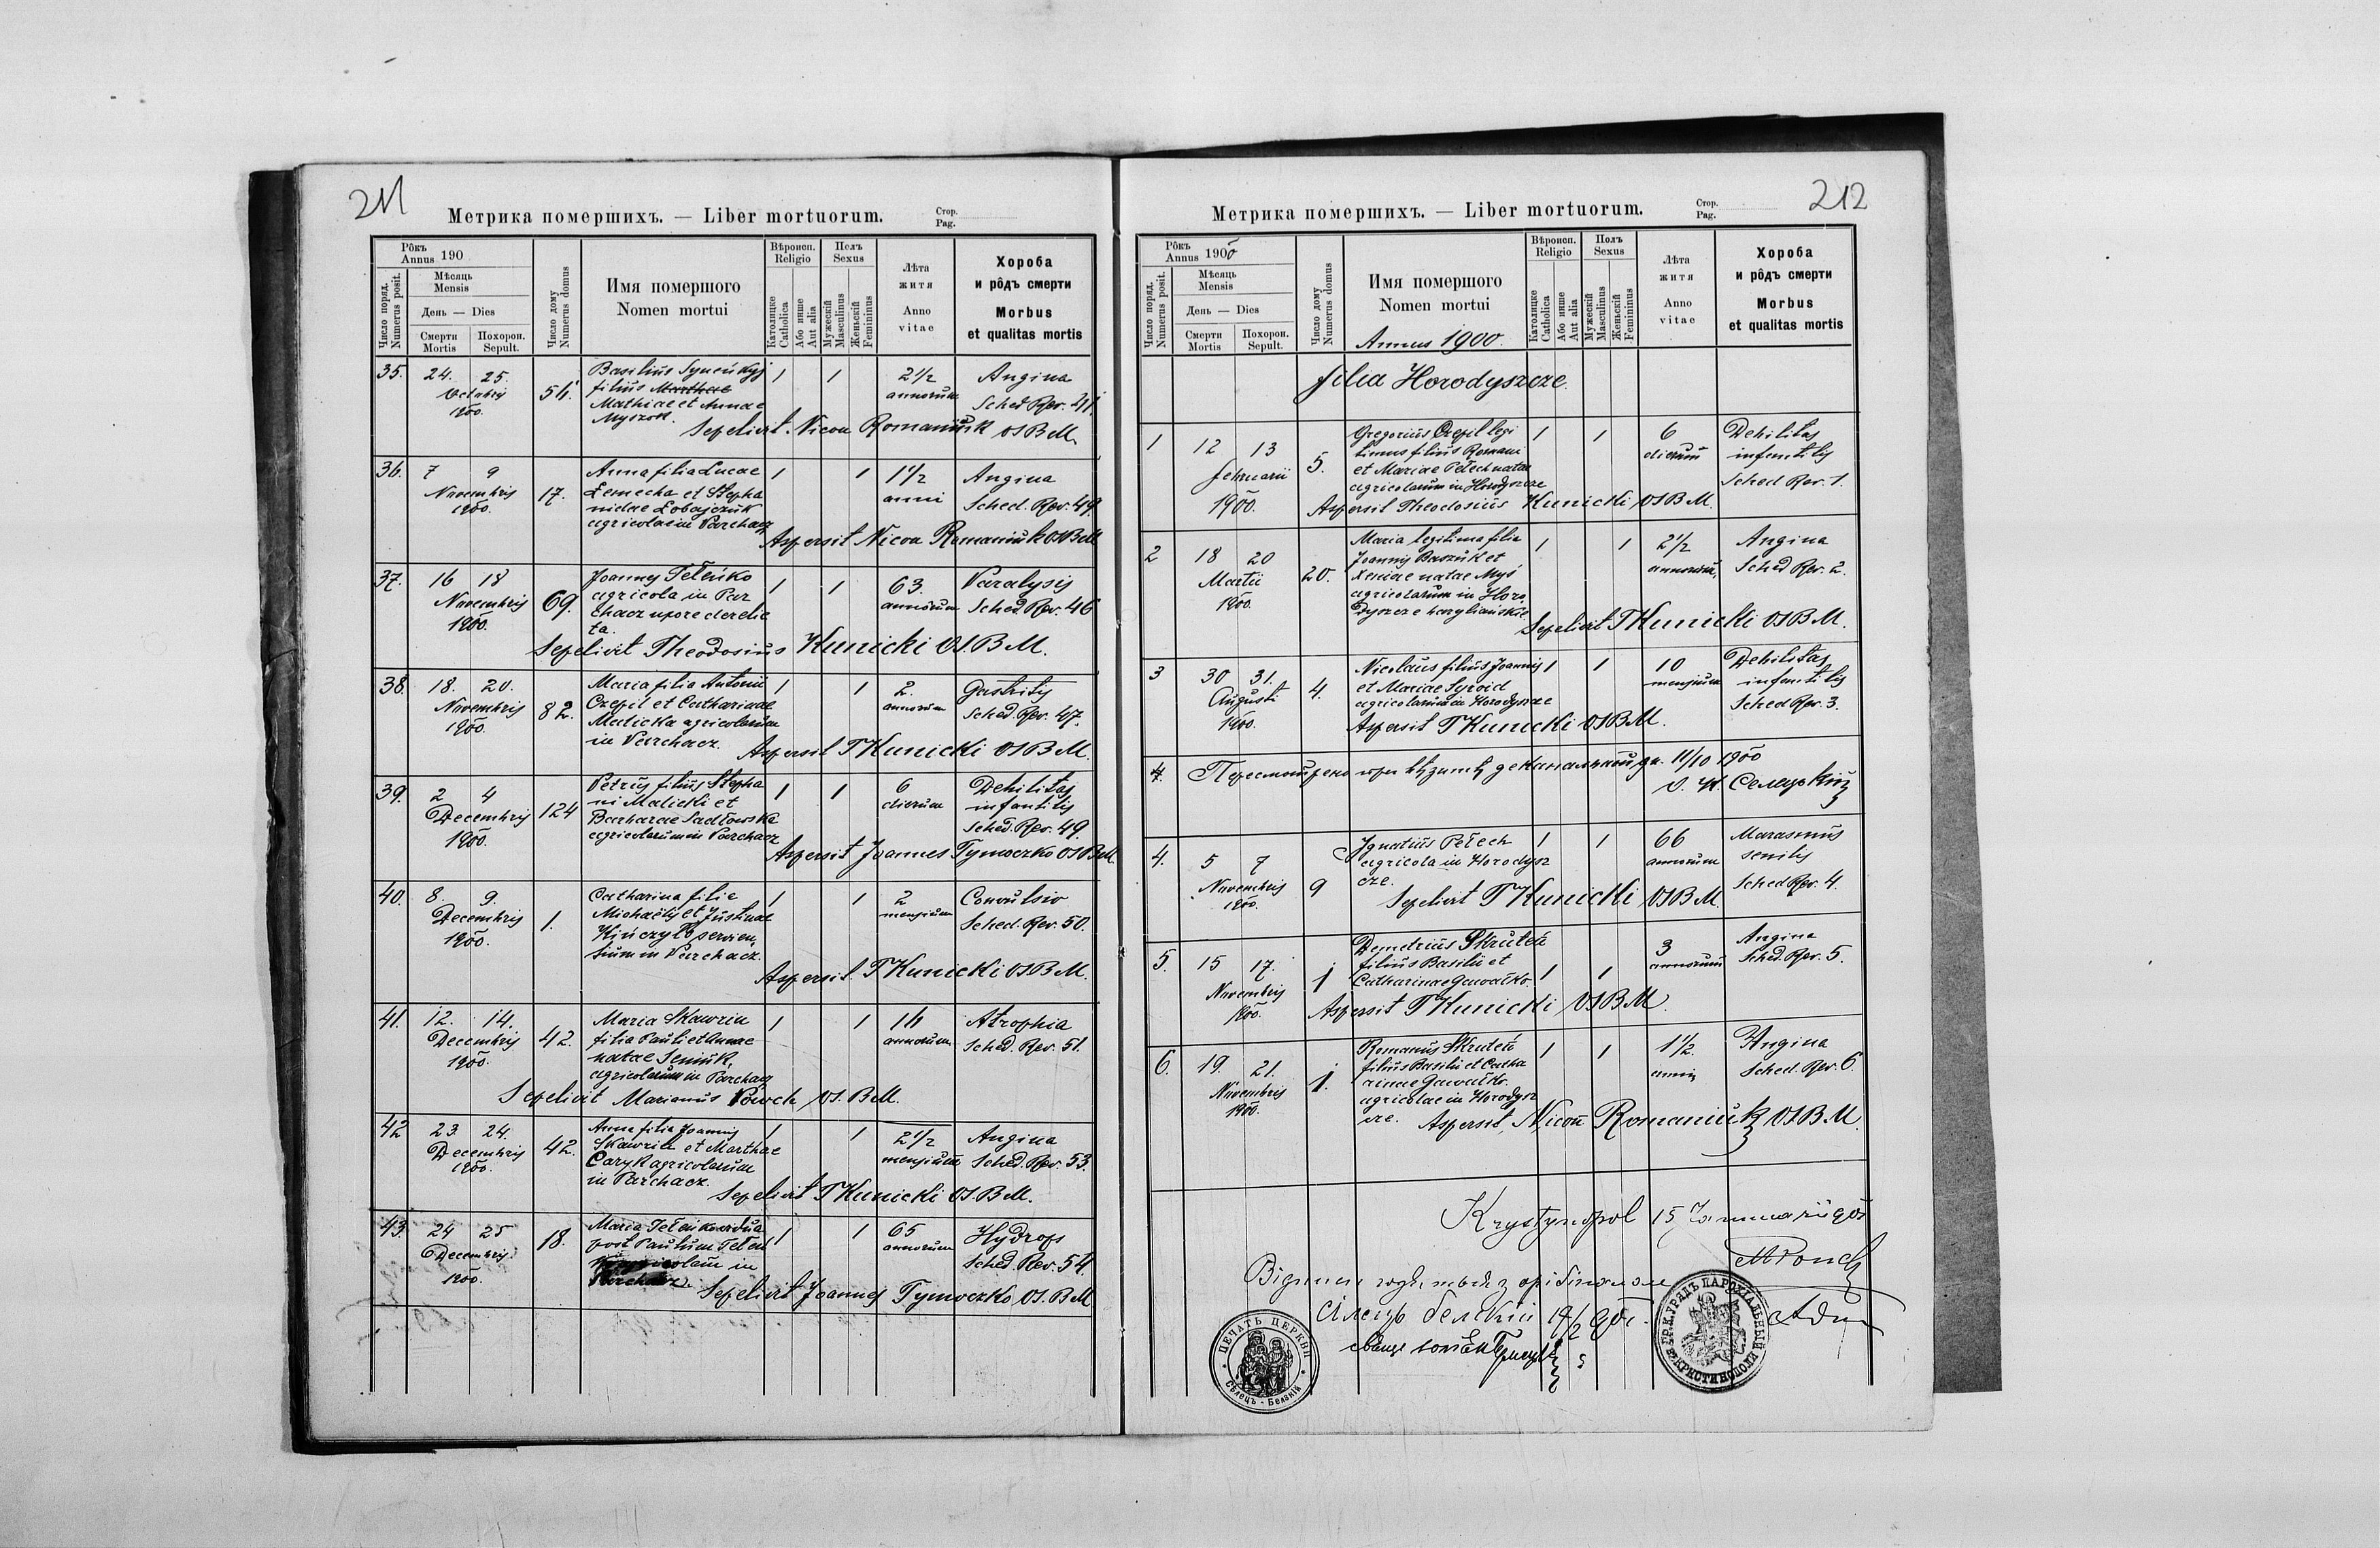 211
Метрика помершихъ. — Liber mortuorum.
Стор.
Pag.
Рôкъ
Annus 190
Мѣсяць
Mensis
День — Dies
Смерти
Mortis
Похорон.
Sepult.
Число поряд.
Numerus posit.
Число дому
Numerus domus
Имя помершого
Nomen mortui
Вѣроисп.
Religio
Католицке
Catholica
Або инше
Aut alia
Полъ
Sexus
Мужескій
Masculinus
Женьскій
Femininus
Лѣта
житя
Anno
vitae
Хороба
и рôдъ смерти
Morbus
et qualitas mortis
35. 24. 25.
Octobris
1900.
Basilius
filius Marthae
Mathiae et Annae
Myszok.
1 1
2 1/2
annorum
Angina
Sched. Rev.
Sepelivit. Nicon Romaniuk OSBM.
36. 7 9
Novembris
1900.
17.
Anna filia Lucae
Łemecha et Stepha
nidae Łobajczuk
agricolae in Parchacz
1 1
1 1/2
anni
Angina
Sched. Rev. 49.
Aspersit Nicon Romaniuk OSBM
37. 16 18
Novembris
1900.
69.
Joannes Teleńko
agricola in Par
chacz uxore derelic
ta.
1 1
63.
annorum
Paralysis
Sched. Rev. 46
Sepelivit Theodosius Kunicki OS.BM.
38. 18. 20.
Novembris
1900.
82.
Maria filia Antonii
Czepil et Catharinae
Malicka agricolarum
in Parchacz.
1 1
2.
annorum
Gastritis
Sched. Rev. 47.
Aspersit TKunicki OSBM.
39. 2 4
Decembris
1900.
124
Petrus filius Stepha
ni Malicki et
Barbarae Sadłowska
agricolarum in Parchacz
1 1
6
dierum
Debilitas
infantilis
Sched. Rev. 49.
Aspersit Joannes Tymoczko OSBM
40. 8. 9.
Decembris
1900.
1.
Catharina filia
Michaelis et Justinae
Kińczyło servien
tium in Parchacz.
1 1
2
mensium
Convulsio
Sched. Rev. 50.
Aspersit. TKunicki OSBM.
41. 12. 14.
Decembris
1900.
42.
Maria Skawrin
filia Pauli et Annae
natae Semiuk
agricolarum in Parchacz
1 1
annorum
Atrophia
Sched. Rev. 51.
Sepelivit Marianus Powch OS.BM.
42 23. 24.
Decembris
1900.
42.
Anna filia Joannis
Skawrin et Marthae
Caryk agricolarum
in Parchacz.
1 1
2 1/2
mensium
Angina
Sched. Rev. 53.
Sepelivit TKunicki OS.BM.
43. 24 25
Decembris
1900.
18.
Maria vidua
post Paulum
in
Parchacz.
1 1
65
annorum
Hydrops
Sched. Rev. 54.
Sepelivit Joannes Tymoczko OS.BM
212
Метрика помершихъ. — Liber mortuorum.
Стор.
Pag.
Рôкъ
Annus 1900
Мѣсяць
Mensis
День — Dies
Смерти
Mortis
Похорон.
Sepult.
Число поряд.
Numerus posit.
Число дому
Numerus domus
Имя помершого
Nomen mortui
Annus 1900.
Вѣроисп.
Religio
Католицке
Catholica
Або инше
Aut alia
Полъ
Sexus
Мужескій
Masculinus
Женьскій
Femininus
Лѣта
житя
Anno
vitae
Хороба
и рôдъ смерти
Morbus
et qualitas mortis
filia Horodyszcze.
1 12 13
februarii
1900.
5.
Gregorius Czepil legi
timus filius Romani
et Mariae Pełech natae
agricolarum in Horodyszcze
1 1
6
dierum
Debilitas
infantilis
Sched. Rev. 1.
Aspersit Theodosius Kunicki OSBM.
2 18 20
Martii
1900.
20.
Maria legitima filia
Joannis Baszuk et
Xeniae natae Myś
agricolarum in Horo
dyszcze
1 1
2 1/2
annorum.
Angina
Sched Rev. 2.
Sepelivit TKunicki OSBM.
3 30 31.
Augusti
1900.
4.
Nicolaus filius Joannis
et Mariae Syroid
agricolarum in Horodyszcze
1 1
10
mensium
Debilitas
infantilis
Sched Rev. 3.
Aspersit TKunicki OSBM.
4. 11/10 1900
4. 5 7
Novembris
1900.
9
Ignatius Pełech
agricola in Horodysz
cze.
1 1
66
annorum
Marasmus
senilis
Sched Rev. 4.
Sepelivit TKunicki OSBM.
5. 15 17.
Novembris
1900.
1
Demetrius Skruteń
filius Basilii et
Catharinae Gawałko.
1 1
3
annorum
Angina
Sched. Rev. 5.
Aspersit TKunicki OSBM.
6. 19. 21.
Novembris
1900.
1.
Romanus Skruteń
filius Basilii et Catha
rinae Gawałko.
agricolae in Horodysz
cze.
1 1
1 1/2.
anni
Angina
Sched. Rev. 6.
Aspersit, Nicon Romaniuk OSBM.
Krystynopol 15 Januarii 901
MPowch
ПЕЧАТЬ ЦЕРКВИ
Сѣлець - Белзкій